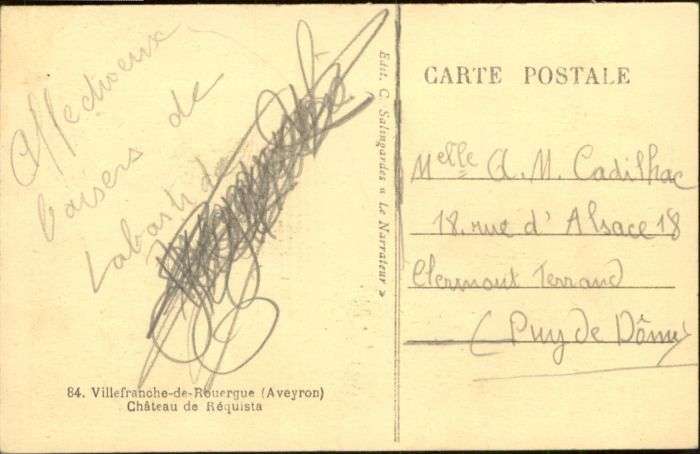 Affectueux
baisers de
Labastide
84. Villefranche-de-Rouergue (Aveyron)
Château de Réquista
Edit. C. Salingardes « Le Narrateur »
CARTE POSTALE
Melle A. M. Cadilhac
18. rue d' Alsace 18
Clermont Ferrand
(Puy de Dôme)